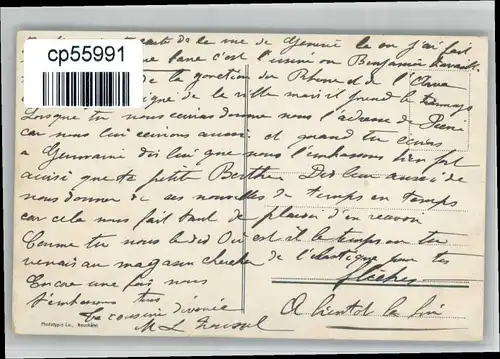 cp55991
carte de la vue de Genève la on j'ai fait
une c'est l'usine ou Benjamin travaille
de la jonction du Rhone et de l'Arve
de la ville mais il prend le Tramway
Lorsque tu nous ecriras donne nous l'adresse de
car nous lui ecrirons aussi et quand tu ecriras
a Germaine dis lui que nous l'embrassons bien fort
ainsi que ta petite Berthe Dis leur aussi de
nous donner de ses nouvelles de temps en temps
car cela nous fait tant de plaisir d'en recevoir
Comme tu nous le dis Ou est il le temps en tu
venais au magasin chercher de l'elastique pour tes
flèches
Encore une fois nous
t'embrassons tous
Ta cousine
M L
A bientot la fin
Phototypie Co., Neuchâtel